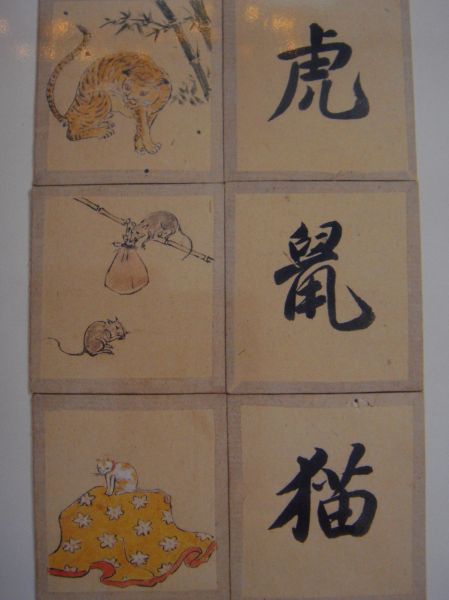 虎
鼠
猫